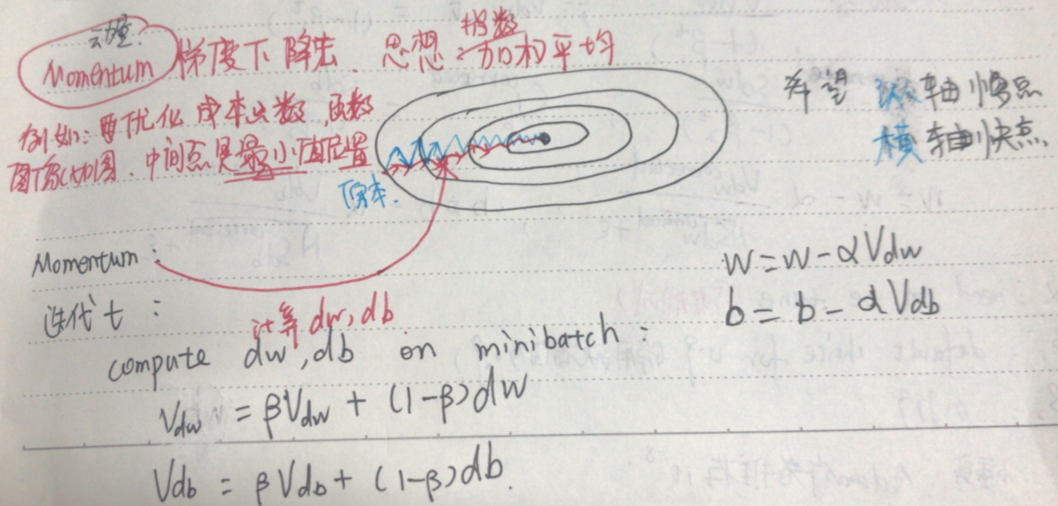 动量
Momentum 梯度下降法. 思想: 指数加权平均
例如: 要优化成本函数, 函数
图像如图. 中间点是最小值位置
原本.
希望 纵轴慢点
横轴快点
Momentum:
迭代 t:
计算 dw, db
compute dw, db on minibatch:
Vdw = βVdw + (1-β)dw
Vdb = βVdb + (1-β)db.
W = W - αVdw
b = b - αVdb